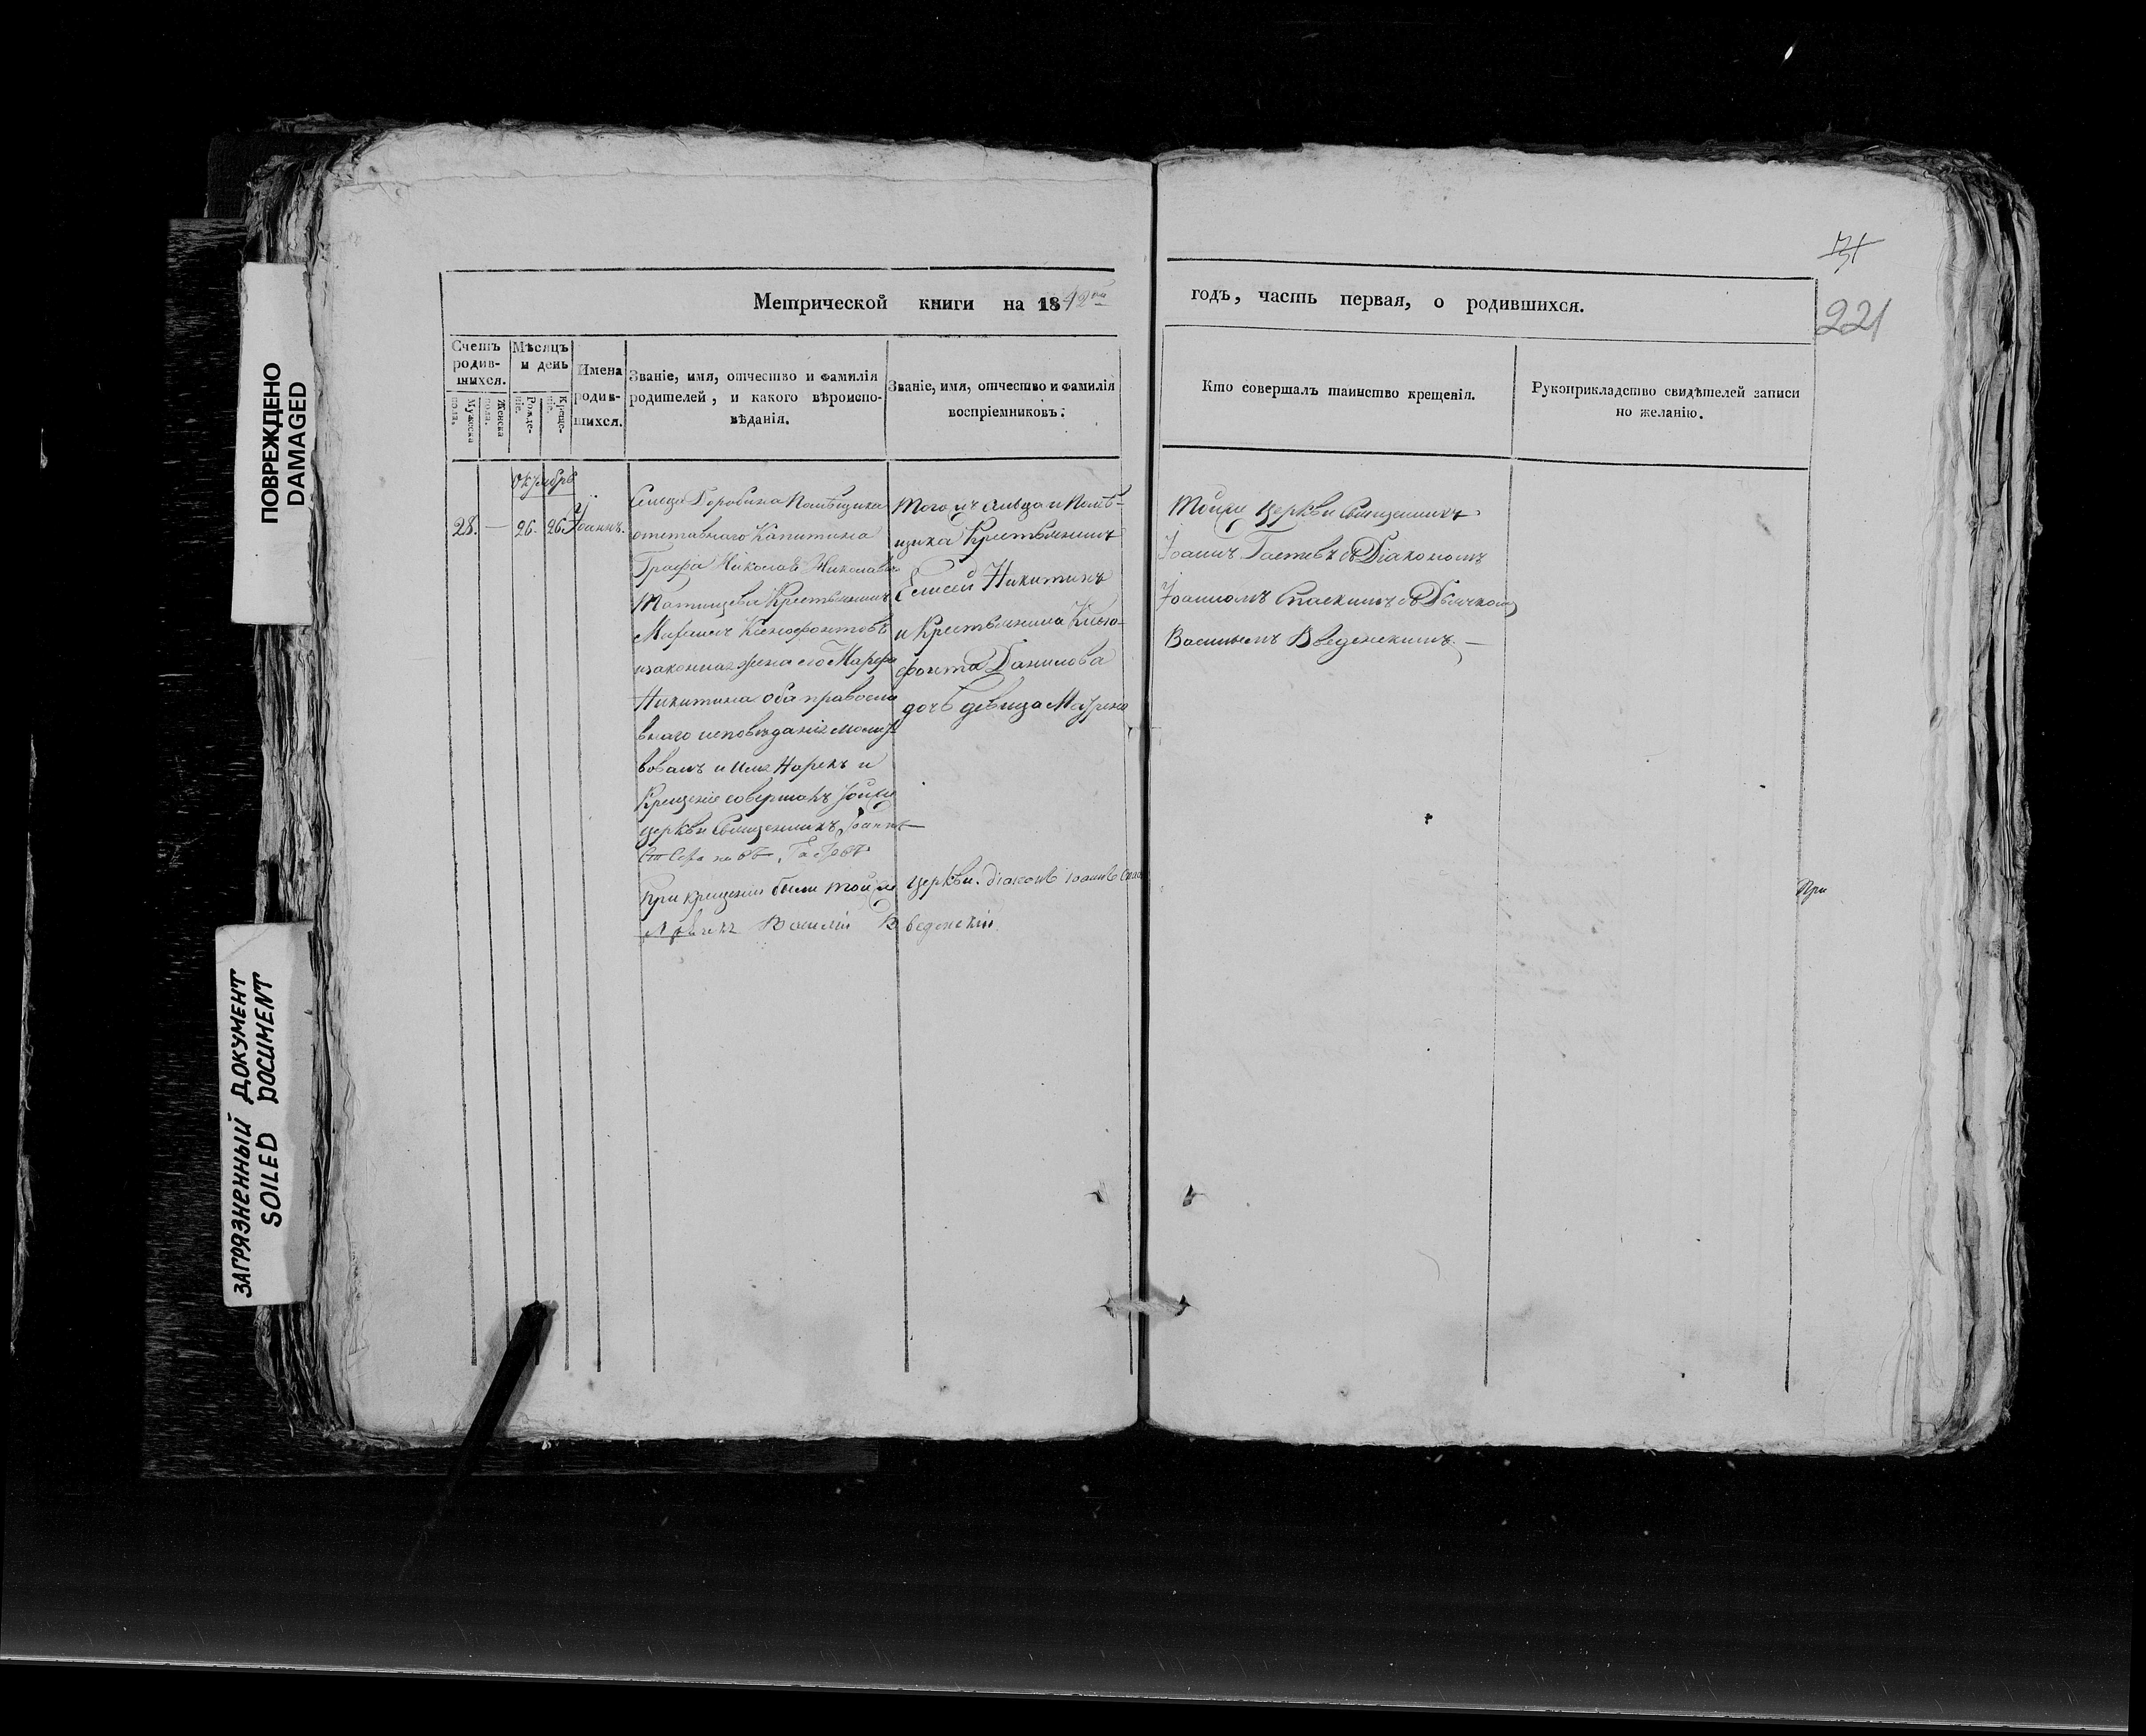 ПОВРЕЖДЕНО
DAMAGED
ЗАГРЯЗНЕННЫЙ ДОКУМЕНТ
SOILED DOCUMENT
221
Метрической книги на 1842
годъ, часть первая, о родившихся.
Счетъ родив-шихся.
Мужеска пола.
Женска пола.
Мѣсяцъ и день
Рожде-нія.
Креще-нія.
Имена родив-шихся.
Званіе, имя, отчество и фамилія родителей, и какого вѣроиспо-вѣданія.
Званіе, имя, отчество и фамилія воспріемниковъ.
Кто совершалъ таинство крещенія.
Рукоприкладство свидѣтелей записи по желанію.
Октябрь
28. — 26. 26. Іоаннъ.
Сельца Помѣщика
отставнаго Капитана
Графа Николая Николаева
Татищева Крестьянинъ
Ксенофонтовъ
и законная жена его Марфа
Никитина оба правосла
внаго исповѣданія молит
вовалъ и имя Нарекъ и
Крещеніе совершалъ тойже
церкви Священникъ Іоаннъ
При крещеніи были тойже церкви діаконъ іоаннъ
Василій Введенскій
Того жъ сельца и Помѣ-
щика Крестьянинъ
Елисей Никитинъ
и Крестьянина Ксено-
фонта Данилова
дочь девица Маѵрена
Тойже церкви Священникъ
Іоаннъ съ Діакономъ
Іоанномъ Спаскимъ съ Дьячкомъ
Васильемъ Введенскимъ. —
При